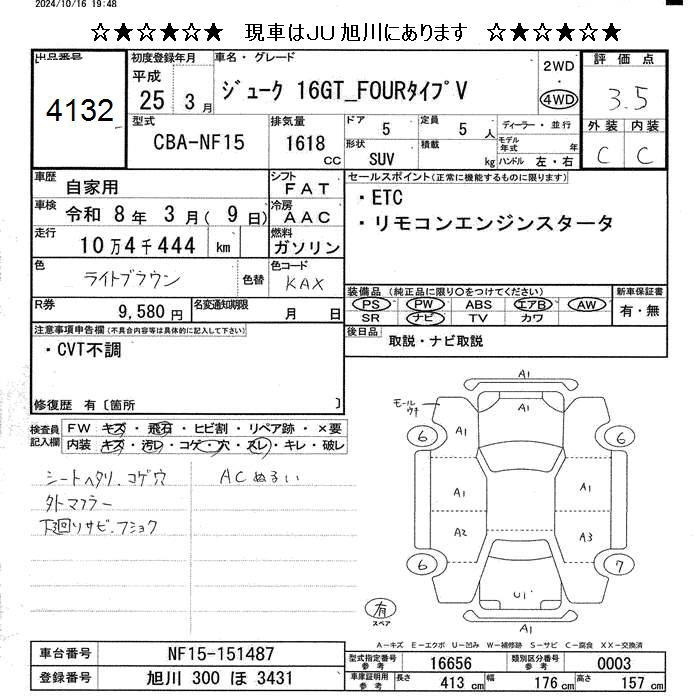 2024/10/16 19:48
☆★☆★☆★ 現車はJU旭川にあります ☆★☆★☆★
出品番号 初度登録年月 車名・グレード 2WD ・ 4WD 評価点
4132 平成 25 3月 ジューク 16GT_FOURタイプV 3.5
型式 排気量 ドア 定員 ディーラー・並行 外装 内装
CBA-NF15 1618 CC 5 5 人 モデル年式 年 C C
形状 SUV 積載 kg ハンドル 左・右
車歴 自家用 シフト FAT セールスポイント(正常に機能するものに限ります)
車検 令和 8年 3月( 9日) 冷房 AAC ・ETC
走行 10万4千444 km 燃料 ガソリン ・リモコンエンジンスタータ
色 ライトブラウン 色替 色コード KAX
装備品 (純正品に限り○をつけてください) 新車保証書
PS PW ABS エアB AW 有・無
SR ナビ TV カワ
R券 9,580円 名変通知期限 月 日
後日品 取説・ナビ取説
注意事項申告欄(不具合内容等は具体的に記入して下さい)
・CVT不調
修復歴 有〔箇所 〕
検査員記入欄 FW キズ・飛石・ヒビ割・リペア跡・×要
内装 キズ・汚レ・コゲ・穴・スレ・キレ・破レ
シートヘタリ、コゲ穴 ACぬるい
外トマフラー
下廻リサビ・フショク
A1
モールウキ A1
6 A1 A1 6
A1 A1
A2 A3
6 U1 7
有 スペア
A1
A-キズ E-エクボ U-凹み W-補修跡 S-サビ C-腐食 XX-交換済
車台番号 NF15-151487 型式指定番号 参考 16656 類別区分番号 参考 0003
登録番号 旭川 300 ほ 3431 車庫証明用 参考 長さ 413 cm 幅 176 cm 高さ 157 cm